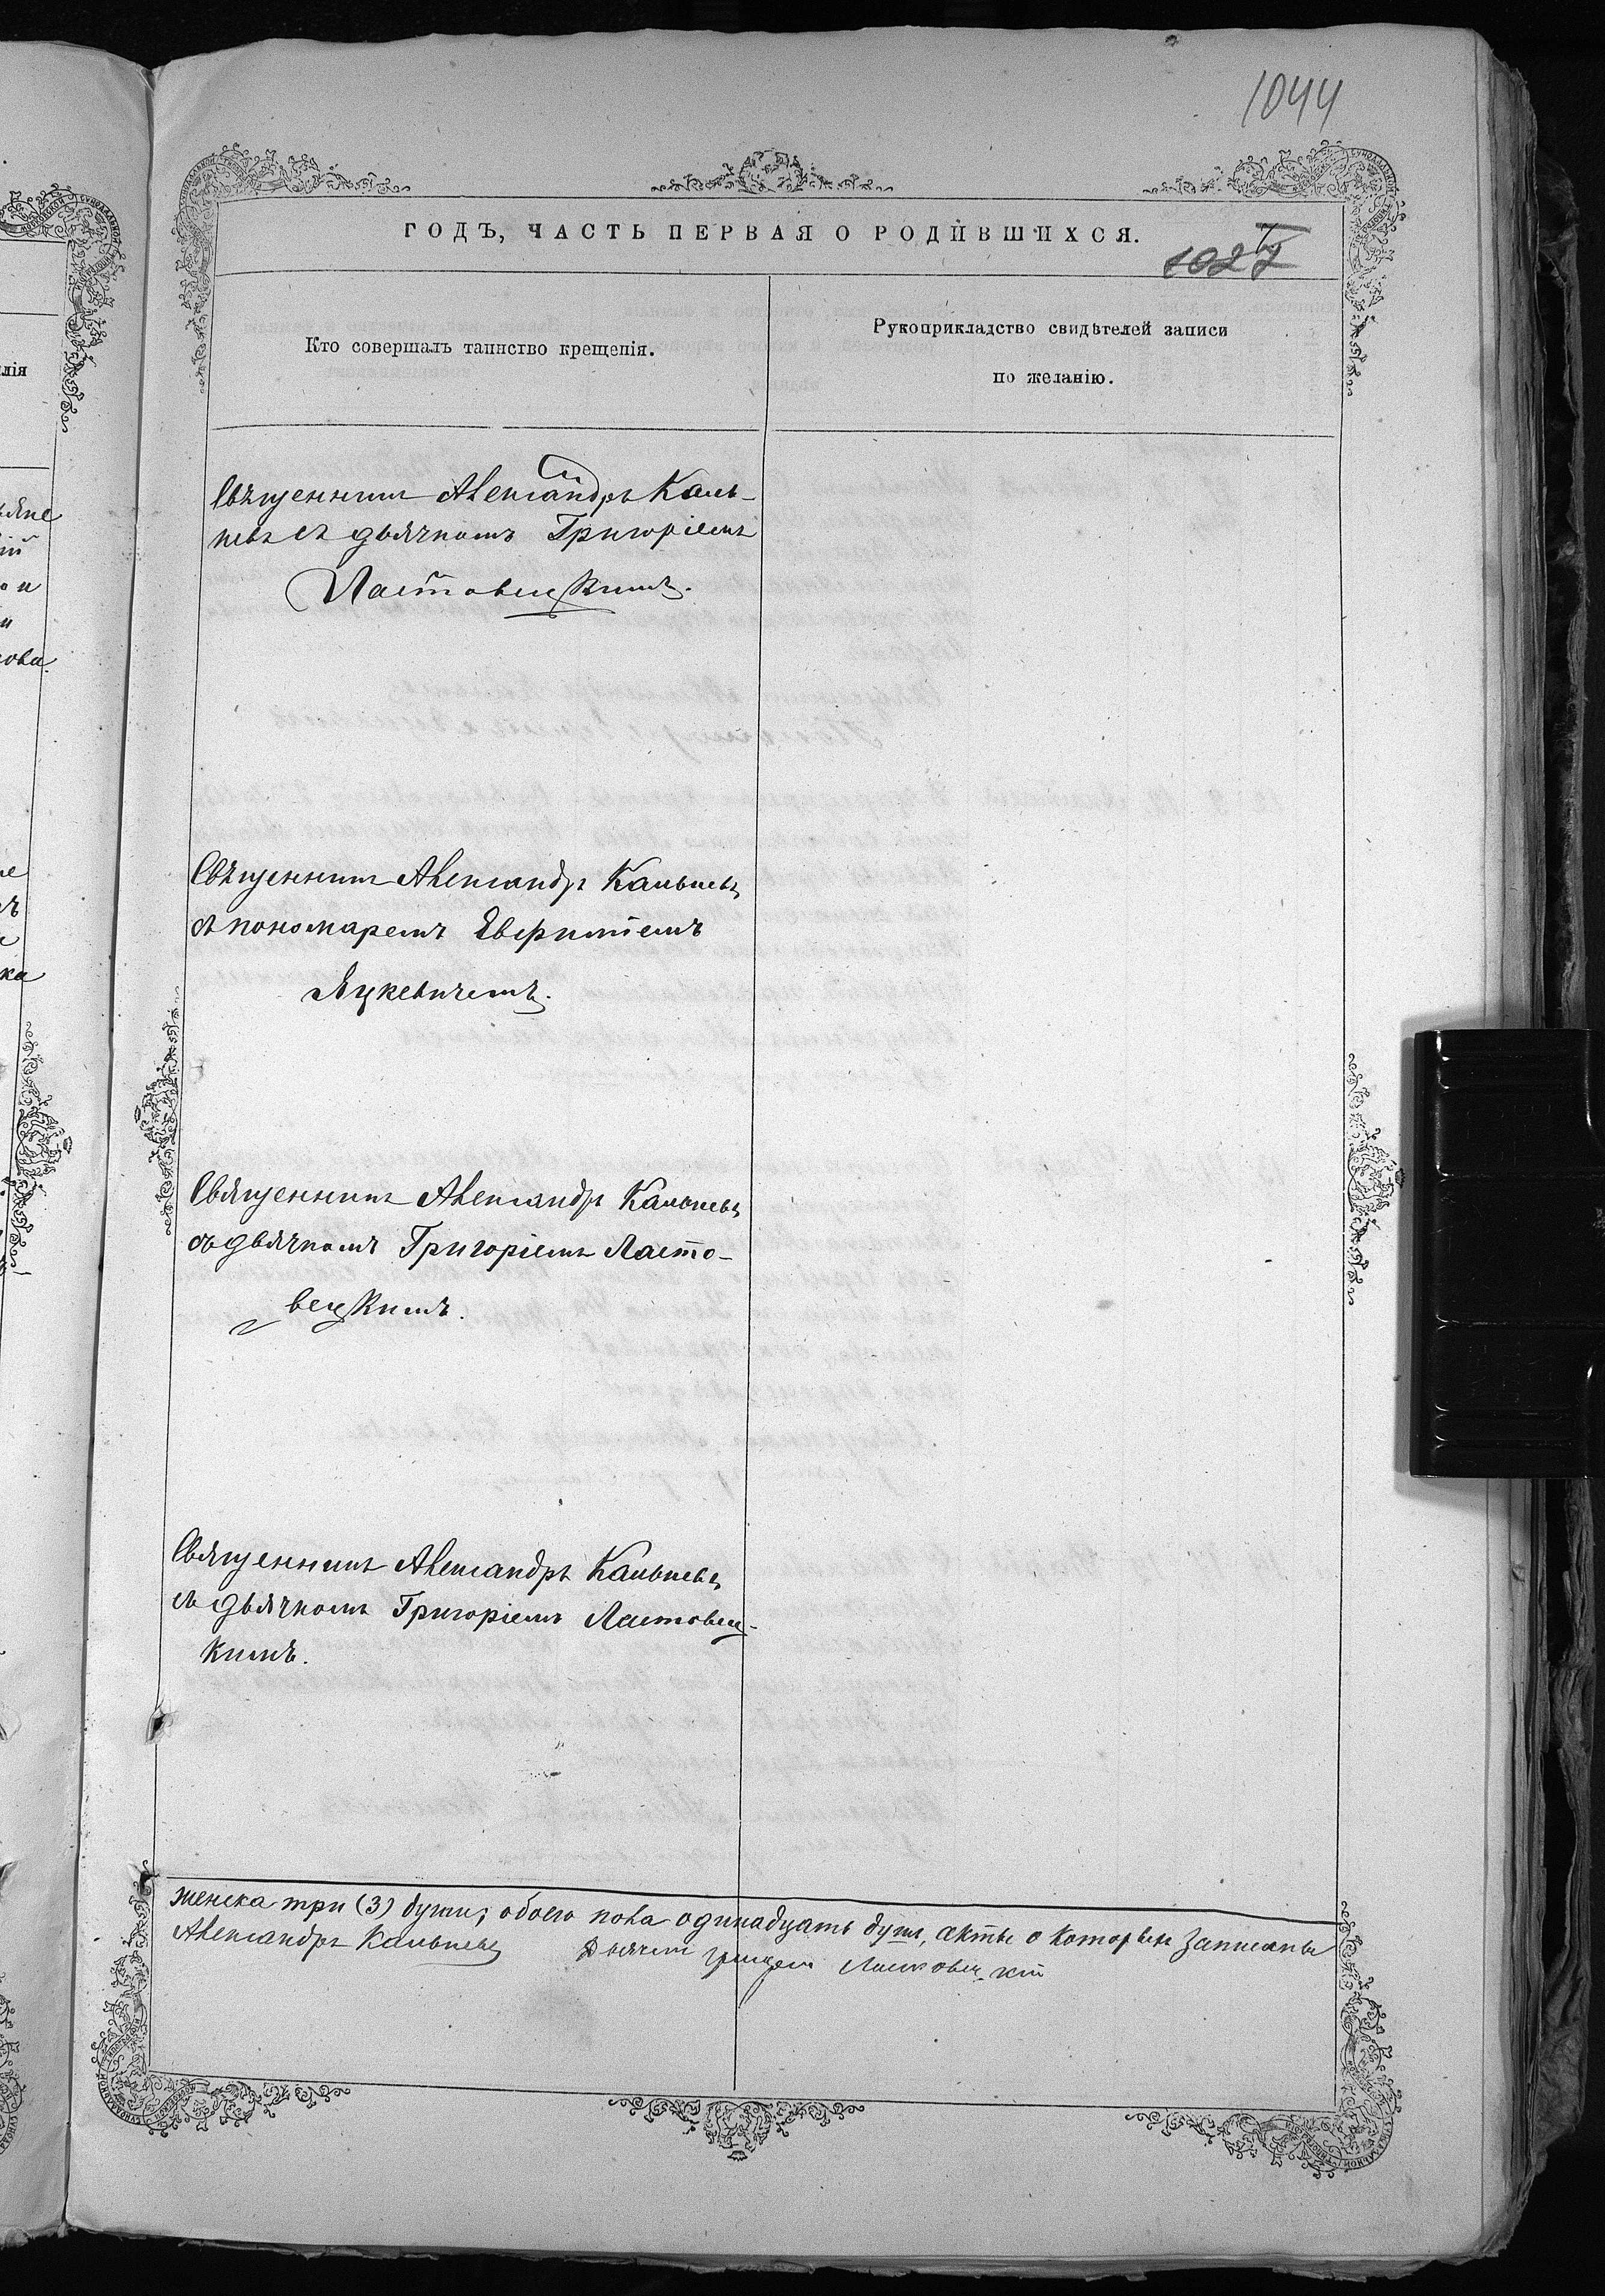 1044
ГОДЪ, ЧАСТЬ ПЕРВАЯ О РОДИВШИХСЯ.
1027
Кто совершалъ таинство крещенія.
Рукоприкладство свидѣтелей записи
по желанію.
Священникъ Александръ Каль-
невъ съ дьячкомъ Григоріемъ
Ластовецкимъ.
Священникъ Александръ Кальневъ
съ пономаремъ Евфиміемъ
Яцкевичемъ.
Священникъ Александръ Кальневъ
съ дьячкомъ Григоріемъ Ласто-
вецкимъ.
Священникъ Александръ Кальневъ
съ дьячкомъ Григоріемъ Ластовец-
кимъ.
женска три (3) души; обоего пола одинадцать душъ, акты о которыхъ записаны
Александръ Кальневъ Дьячекъ Ластовецкій